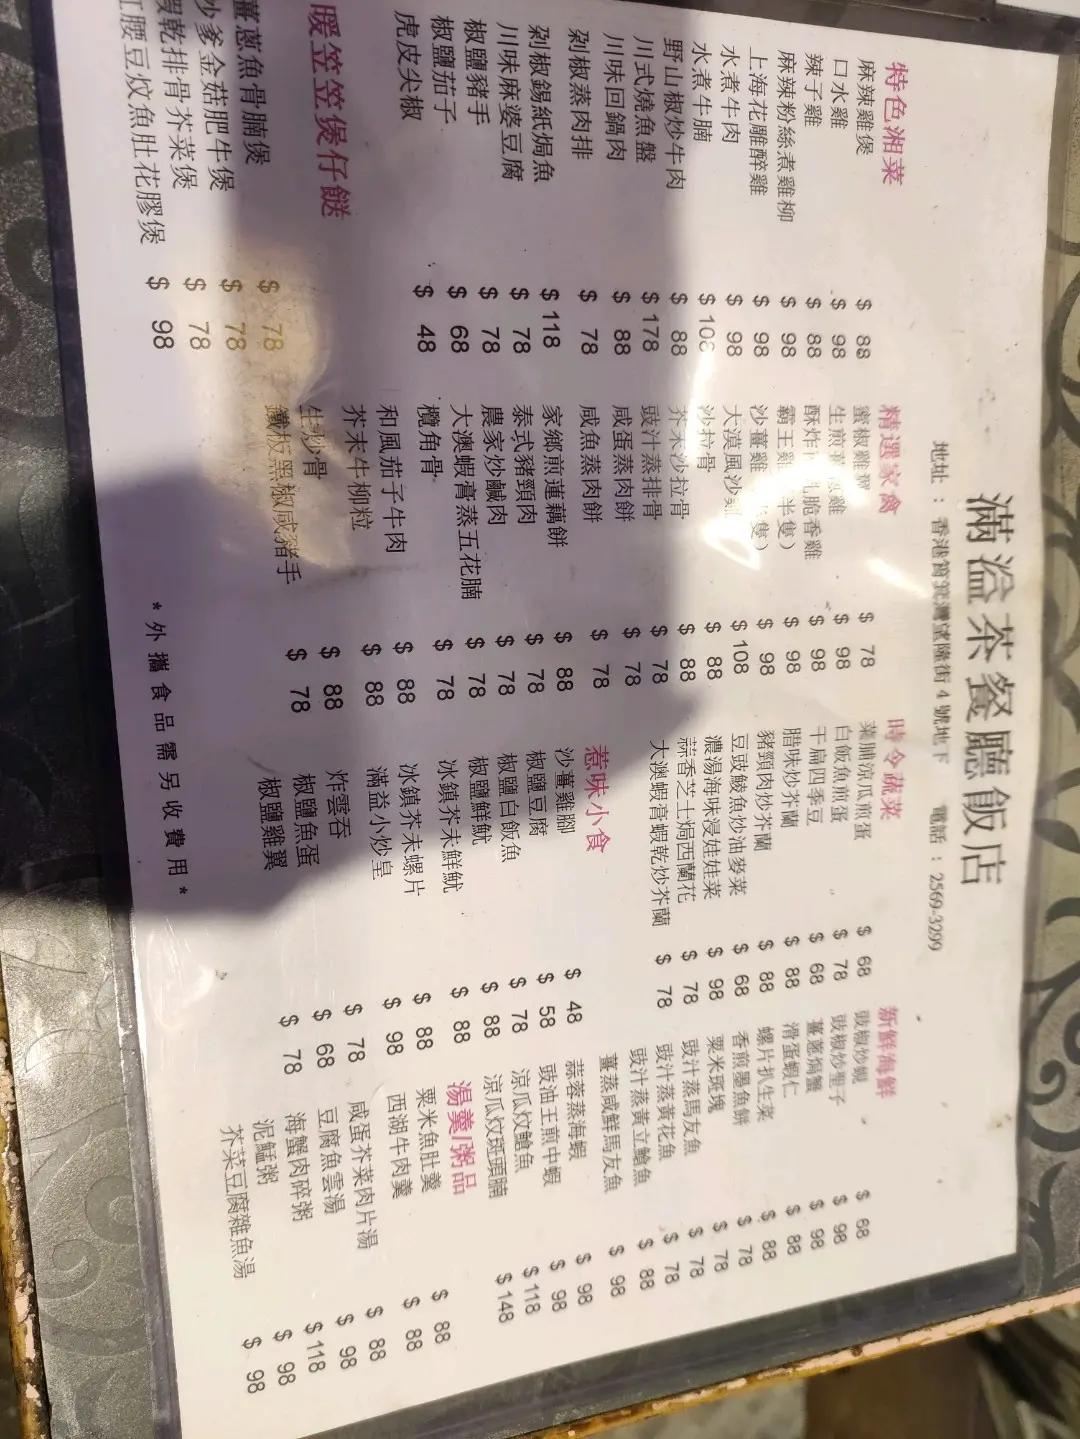 滿溢茶餐廳飯店
地址：香港筲箕灣望隆街4號地下 電話：2569-3299
特色湘菜
麻辣雞煲 $ 88
口水雞 $ 98
辣子雞 $ 88
麻辣粉絲煮雞柳 $ 98
上海花雕醉雞 $ 98
水煮牛肉 $ 98
水煮牛腩 $ 108
野山椒炒牛肉 $ 88
川式燒魚盤 $ 178
川味回鍋肉 $ 88
剁椒蒸肉排 $ 78
剁椒錫紙焗魚 $ 118
川味麻婆豆腐 $ 78
椒鹽豬手 $ 78
椒鹽茄子 $ 68
虎皮尖椒 $ 48
暖笠笠煲仔餸
薑蔥魚骨腩煲 $ 78
沙爹金菇肥牛煲 $ 78
蝦乾排骨芥菜煲 $ 78
紅腰豆炆魚肚花膠煲 $ 98
精選家禽
蜜椒雞翼 $ 78
生煎 雞 $ 98
酥炸 乳脆香雞 $ 98
霸王雞 半隻） $ 98
沙薑雞 隻） $ 98
大漠風沙雞 $ 108
沙拉骨 $ 88
芥末沙拉骨 $ 88
豉汁蒸排骨 $ 78
咸蛋蒸肉餅 $ 78
咸魚蒸肉餅 $ 78
家鄉煎蓮藕餅 $ 88
泰式豬頸肉 $ 78
農家炒鹹肉 $ 78
大澳蝦膏蒸五花腩 $ 78
欖角骨 $ 78
和風茄子牛肉 $ 88
芥末牛柳粒 $ 88
生炒骨 $ 88
鐵板黑椒咸豬手 $ 78
時令蔬菜
菜脯涼瓜煎蛋 $ 68
白飯魚煎蛋 $ 78
干扁四季豆 $ 68
腊味炒芥蘭 $ 88
豬頸肉炒芥蘭 $ 88
豆豉鯪魚炒油麥菜 $ 68
濃湯海味浸娃娃菜 $ 98
蒜香芝士焗西蘭花 $ 78
大澳蝦膏蝦乾炒芥蘭 $ 78
惹味小食
沙薑雞腳 $ 48
椒鹽豆腐 $ 58
椒鹽白飯魚 $ 78
椒鹽鮮魷 $ 88
冰鎮芥末鮮魷 $ 88
冰鎮芥末螺片 $ 88
滿益小炒皇 $ 98
炸雲吞 $ 78
椒鹽魚蛋 $ 68
椒鹽雞翼 $ 78
新鮮海鮮
豉椒炒蜆 $ 68
豉椒炒聖子 $ 98
薑蔥焗蟹 $ 98
滑蛋蝦仁 $ 88
螺片扒生菜 $ 88
香煎墨魚餅 $ 78
粟米斑塊 $ 78
豉汁蒸馬友魚 $ 78
豉汁蒸黃花魚 $ 78
豉汁蒸黃立鯧魚 $ 88
薑蒸咸鮮馬友魚 $ 98
蒜蓉蒸海蝦 $ 98
豉油王煎中蝦 $ 98
涼瓜炆鯧魚 $ 118
涼瓜炆斑頭腩 $ 148
湯羹/粥品
粟米魚肚羹 $ 88
西湖牛肉羹 $ 88
咸蛋芥菜肉片湯 $ 88
豆腐魚雲湯 $ 98
海蟹肉碎粥 $ 118
泥鯭粥 $ 98
芥菜豆腐雜魚湯 $ 98
*外攜食品需另收費用*